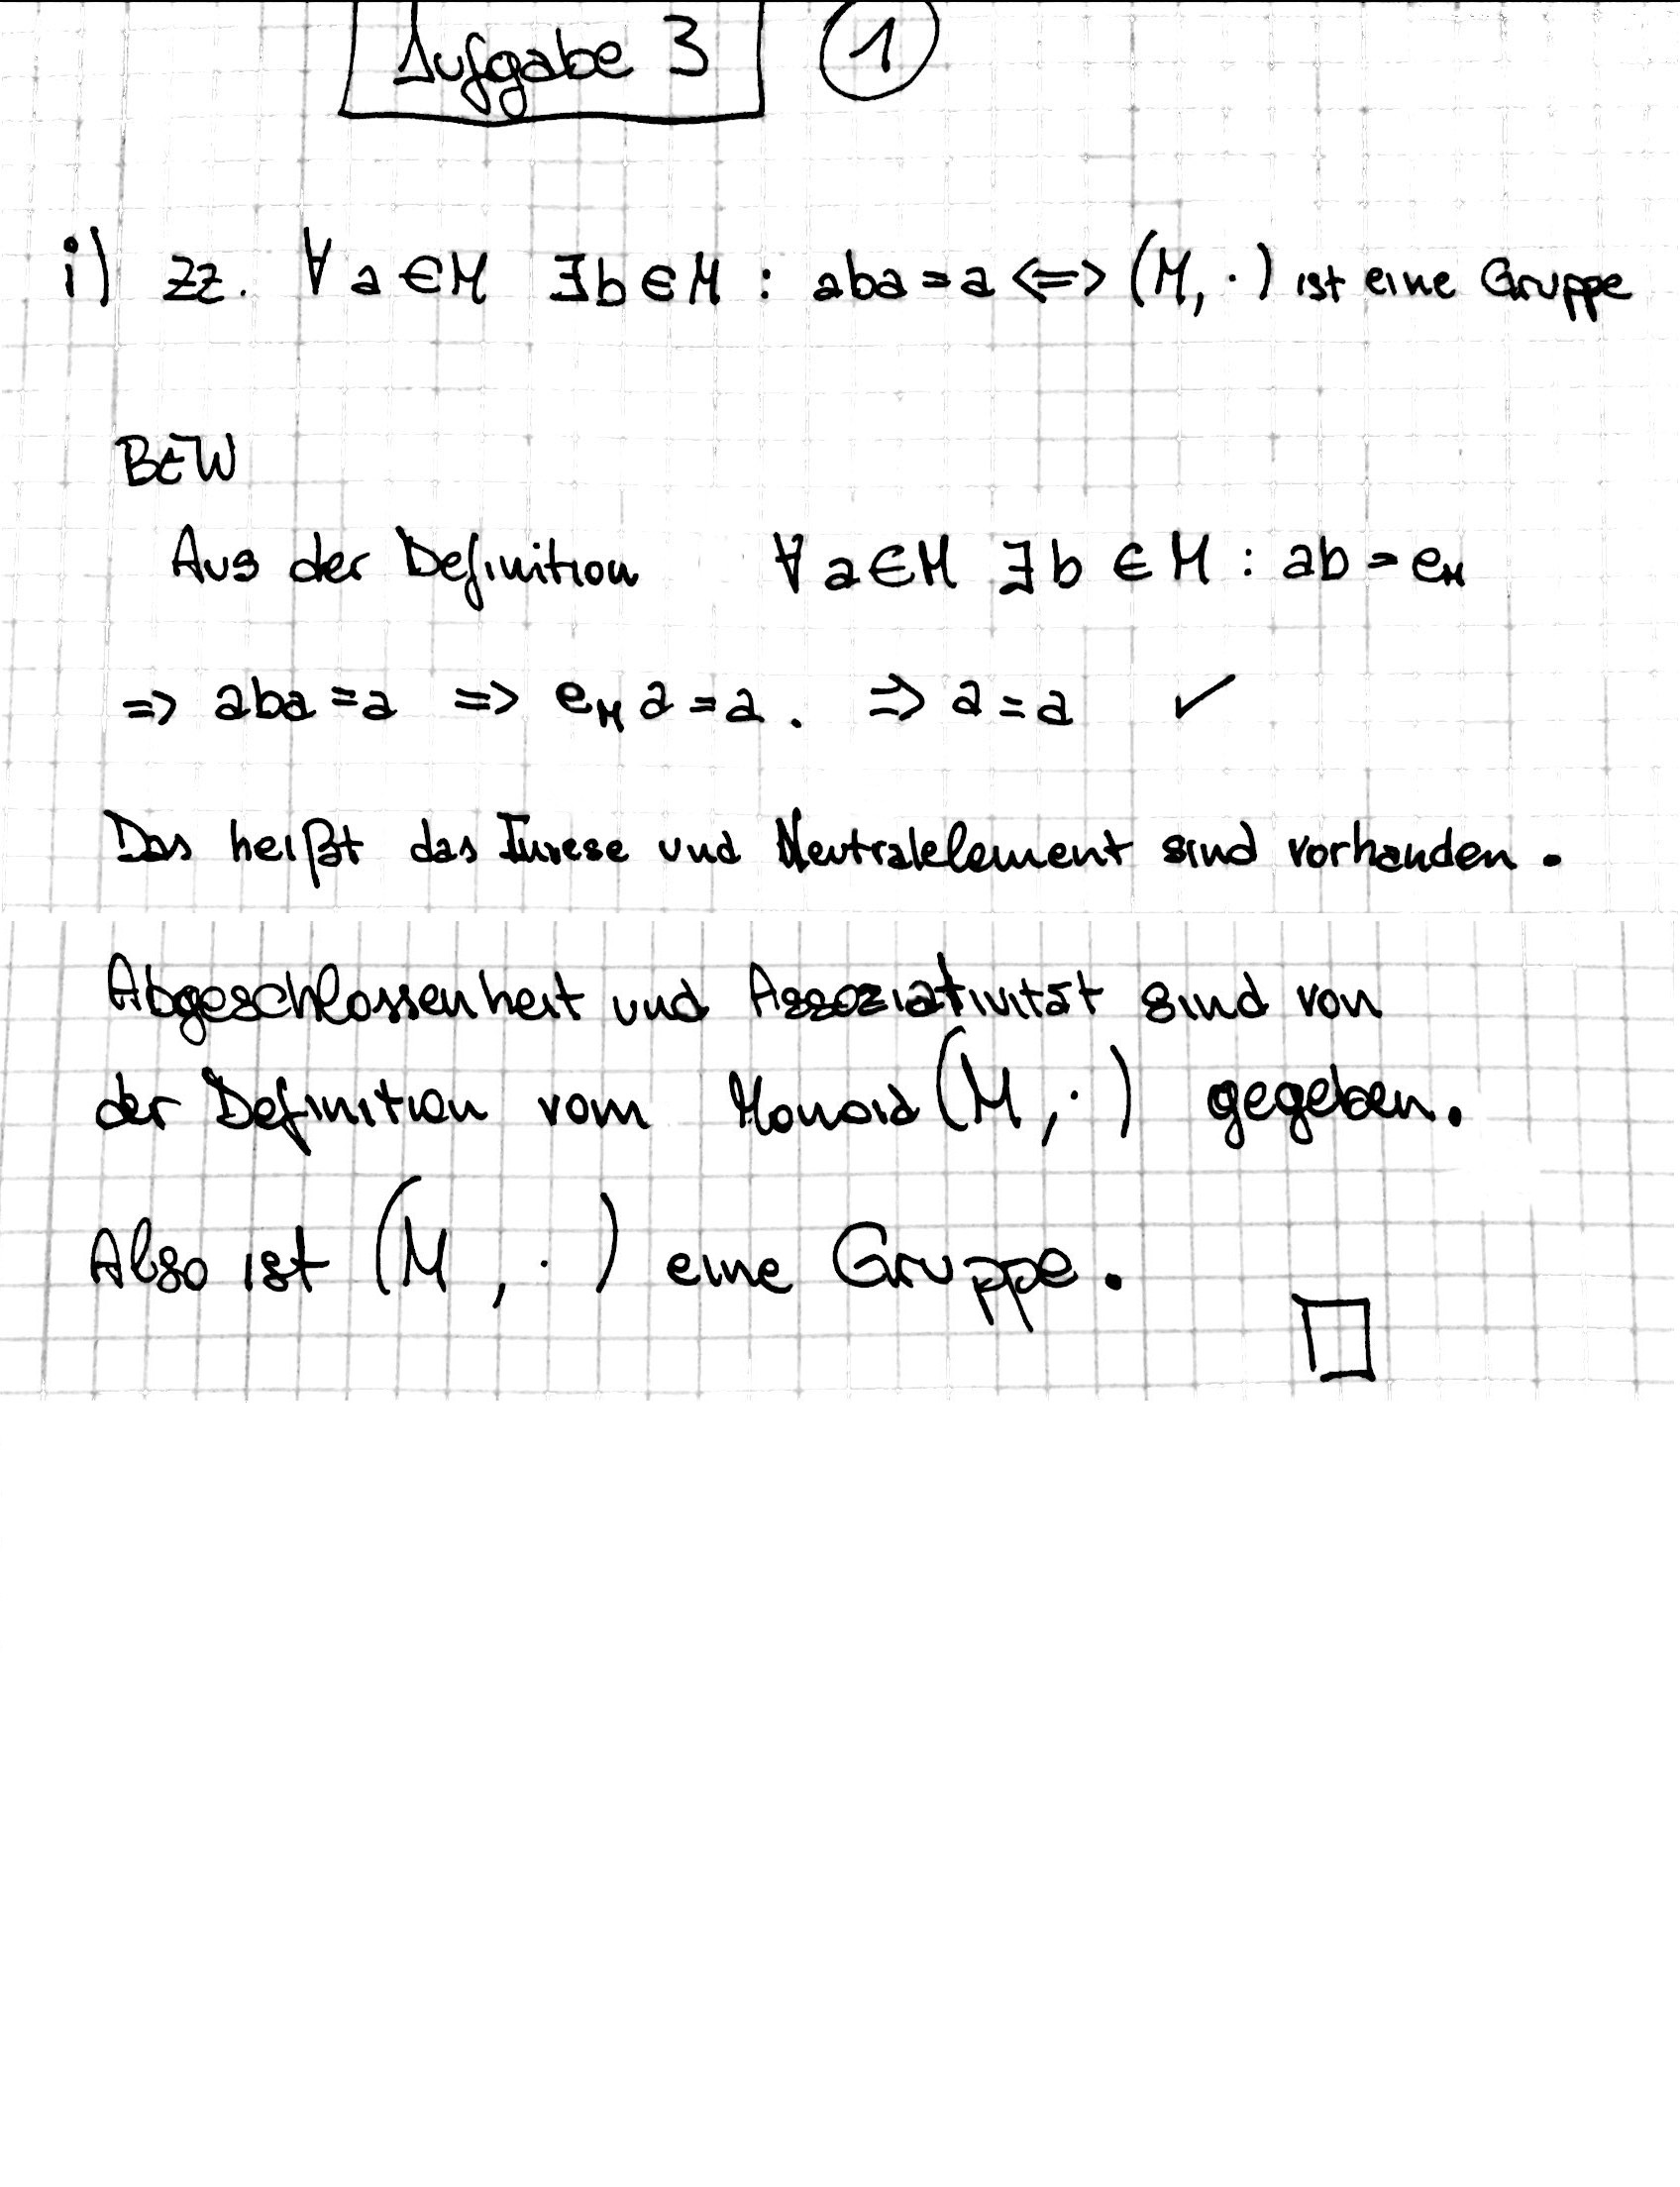 Aufgabe 3 1
i) zz. ∀ a ∈ M ∃ b ∈ M : aba = a <=> (M, ·) ist eine Gruppe
BEW
Aus der Definition ∀ a ∈ M ∃ b ∈ M : ab = e_M
=> aba = a => e_M a = a . => a = a ✓
Das heißt das Inrese und Neutralelement sind vorhanden .
Abgeschlossenheit und Assoziativität sind von
der Definition vom Monoid (M, ·) gegeben.
Also ist (M, ·) eine Gruppe .
□